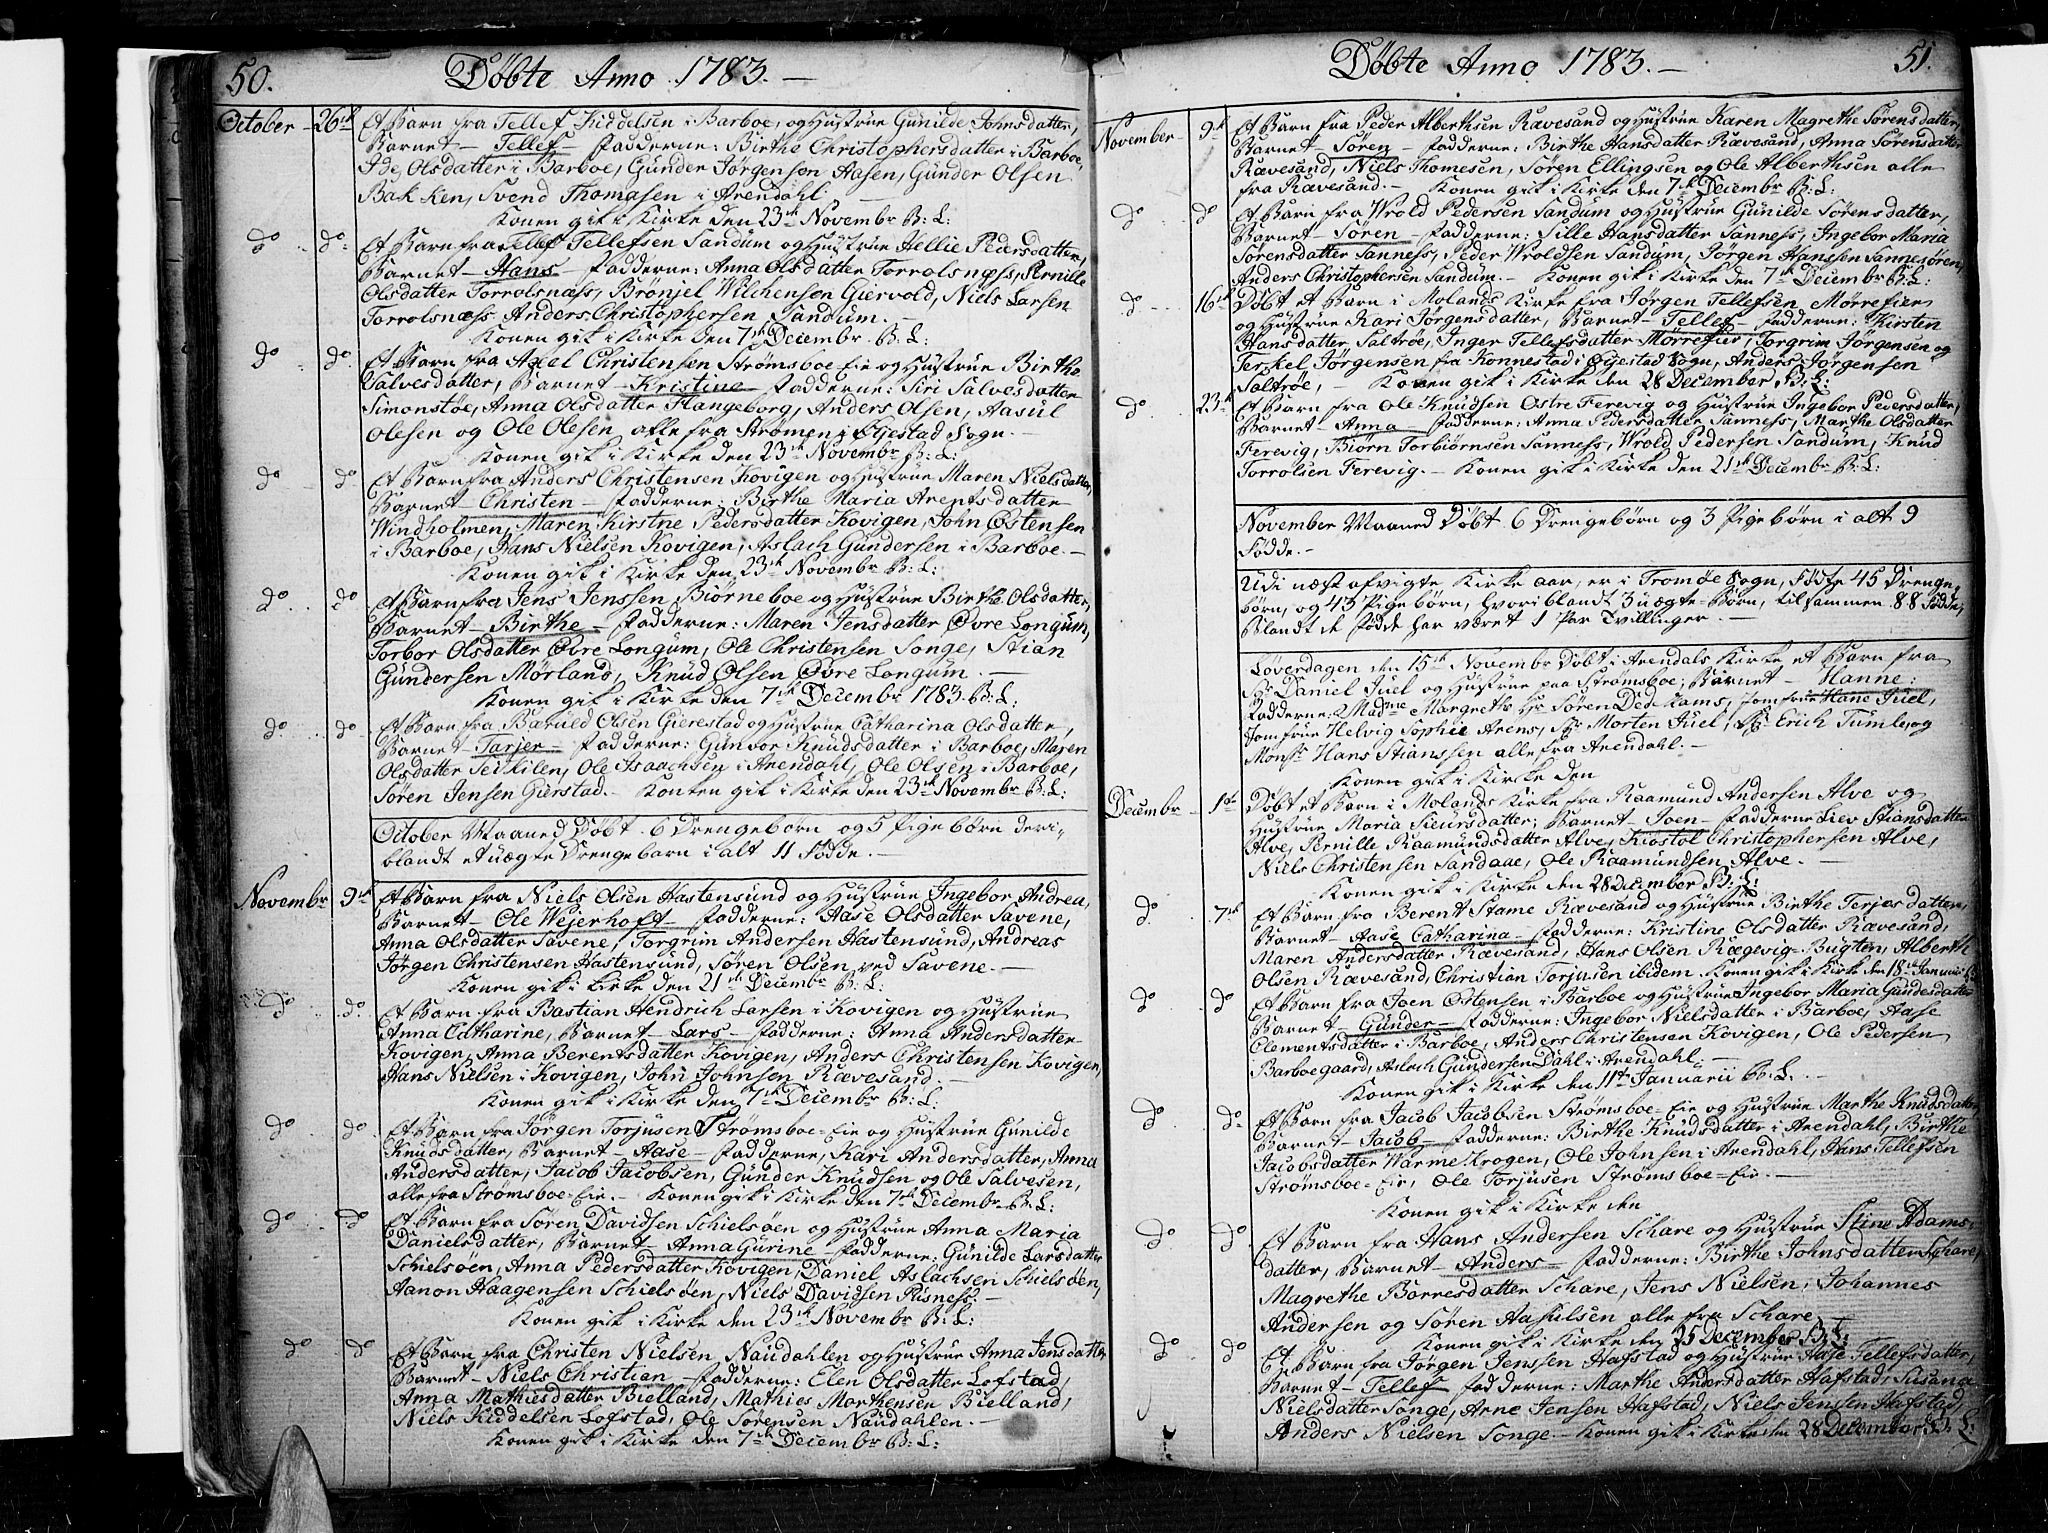 50. Døbte Anno 1783.—
October 26th Et Barn fra Tellef Kiddelsen i Barboe, og Hustrue Gunilde Johnsdatter,
Barnet – Tellef – Fadderne: Birthe Christophersdatter i Barboe,
Ide Olsdatter i Barboe, Günder Jørgensen Aasen, Günder Olsen
Bakken, Svend Thomasen i Arendahl.—
Konen gik i Kirke den 23th Novembr B: L:
do do Et Barn fra Tellef Tellefsen Sandum og Hustrue Hellie Pedersdatter,
Barnet – Hans – Fadderne: Anna Olsdatter Torrolsnæss, Pernille
Olsdatter Torrolsnæss, Brønjel Wilchensen Giervold, Niels Larsen
Torrolsnæss Anders Christophersen Sandum.—
Konen gik i Kirke den 7th Decembr. B: L:
do do Et Barn fra Axel Christensen Strømsboe Eie og Hustrue Birthe
Salvesdatter, Barnet – Kristine – Fadderne: Siri Salvesdatter
Simonstøe, Anna Olsdatter Flangeborg, Anders Olsen, Aasul
Olesen og Ole Olesen alle fra Strømen i Øjestad Sogn.—
Konen gik i Kirke den 23th Novembr B: L:
do do Et Barn fra Anders Christensen Kovigen og Hustrue Maren Nielsdatter,
Barnet – Christen – Fadderne: Birthe Maria Arentsdatter
Windholmen, Maren Kirstne Pedersdatter Kovigen, John Østensen
i Barboe, Hans Nielsen Kovigen, Aslach Gundersen i Barboe.—
Konen gik i Kirke den 23th Novembr B: L:
do do Et Barn fra Jens Jenssen Biørneboe og Hustrue Birthe Olsdatter,
Barnet – Birthe – Fadderne: Maren Jensdatter Øvre Longum,
Torbor Olsdatter Øvre Longum, Ole Christensen Songe, Stian
Gündersen Mørland, Knud Olsen Øvre Longum.—
Konen gik i Kirke den 7th Decembr 1783. B: L:
do do Et Barn fra Baruled Olsen Gierestad og Hustrue Catharina Olsdatter,
Barnet – Tarjer – Fadderne: Gunvor Knudsdatter i Barboe, Maren
Olsdatter Teikilen, Ole Isaachsen i Arendahl, Ole Olsen i Barboe,
Søren Jensen Gierstad.— Konen gik i Kirke den 23th Novembr B: L:
October Maaned Døbt 6 Drengebørn og 5 Pigebørn deri-
blandt et uægte Drengebarn i alt 11 Fødde.—
Novembr 9th Et Barn fra Niels Olsen Hastensund og Hustrue Ingebor Andrea,
Barnet – Ole Wejerhoft – Fadderne: Aase Olsdatter Savene,
Anna Olsdatter Savene, Torgrim Andersen Hastensund, Andreas
Jørgen Christensen Hastensund, Søren Olsen ved Savene.—
Konen gik i Kirke den 21th Decembr B: L:
do do Et Barn fra Bastian Hendrich Larsen i Kovigen og Hustrue
Anna Catharine, Barnet – Lars – Fadderne: Anna Andersdatter
Kovigen, Anna Berentsdatter Kovigen, Anders Christensen Kovigen,
Hans Nielsen i Kovigen, John Johnsen Rævesand.—
Konen gik i Kirke den 7th Decembr B: L:
do do Et Barn fra Jørgen Torjusen Strømsboe-Eie og Hustrue Gunilde
Knudsdatter, Barnet – Aase – Fadderne, Kari Andersdatter, Anna
Andersdatter, Jacob Jacobsen, Gunder Knudsen og Ole Salvesen,
alle fra Strømsboe-Eie.— Konen gik i Kirke den 7th Decembr B: L:
do do Et Barn fra Søren Davidsen Schielsøen og Hustrue Anna Maria
Danielsdatter, Barnet – Anna Gurine – Fadderne: Gunilde Larsdatter
Schielsøen, Anna Pedersdatter Kovigen, Daniel Aslachsen Schielsøen,
Aanon Haagensen Schielsøen, Niels Davidsen Risness.—
Konen gik i Kirke den 23th Novembr B: L:
do do Et Barn fra Christen Nielsen Naudahlen og Hustrue Anna Jensdatter
Barnet – Niels Christian – Fadderne: Elen Olsdatter Lofstad,
Anna Mathiesdatter Bielland, Mathies Morthensen Bielland,
Niels Kiddelsen Lofstad, Ole Sørensen Naudahlen.—
Konen gik i Kirke den 7th Decembr B: L:
Døbte Anno 1783.— 51.
November 9th Et Barn fra Peder Alberthsen Rævesand og Hustrue Karen Magrethe Sørensdatter,
Barnet – Søren – Fadderne: Birthe Hansdatter Rævesand, Anna Sørensdatter
Rævesand, Niels Thomesen, Søren Ellingsen og Ole Alberthsen alle
fra Rævesand.— Konen gik i Kirke den 7th Decembr B: L:
do do Et Barn fra Wrold Pedersen Sandum og Hustrue Gunilde Sørensdatter,
Barnet – Søren – Fadderne: Sille Hansdatter Sanness, Ingebor Maria
Sørensdatter Sanness, Peder Wroldsen Sandum, Jørgen Hanssen Sannesøren,
Anders Christophersen Sandum.— Konen gik i Kirke den 7th Decembr B: L:
do 16th Døbt et Barn i Molands Kirke fra Jørgen Tellefsen Mørrefier
og Hustrue Kari Jørgensdatter, Barnet – Tellef – Fadderne: Kirsten
Hansdatter Saltrøe, Inger Tellefsdatter Mørrefier, Torgrim Jørgensen og
Terkel Jørgensen fra Konnestad i Øjestad Sogn, Anders Jørgensen
Saltrøe,— Konen gik i Kirke den 28 December B: L:
do 23th Et Barn fra Ole Knudsen Østre Ferevig og Hustrue Ingebor Pedersdatter,
Barnet – Anna – Fadderne: Anna Pedersdatter Sanness, Marthe Olsdatter
Ferevig, Biørn Torbiørnsen Sanness, Wrold Pedersen Sandum, Knud
Torrolsen Ferevig.— Konen gik i Kirke den 21th Decembr B: L:
November Maaned Døbt 6 Drengebørn og 3 Pigebørn i alt 9
Fødde.—
Udi næst afvigte Kirke aar, er i Tromøe Sogn, Fødte 45 Drenge-
børn, og 43 Pigebørn, hvoriblandt 3 uægte-Børn, tilsammen 88 Fødde,
Blandt de Fødde har været 1 Par Tvillinger.—
Løverdagen den 15th Novembr Døbt i Arendals Kirke et Barn fra
Sr Daniel Juel og Hustrue paa Strømsboe; Barnet – Hanne:
Fadderne: Madme Margrethe Hr Søren Dedekams, Jomfrue Hane Juel,
Jomfrue Helvig Sophie Arens, Sr Morten Juel, Sr Erich Tumle, og
Monsr Hans Stianssen alle fra Arendahl.—
Konen gik i Kirke den
Decembr 1te Døbt et Barn i Molands Kirke fra Raamund Andersen Alve og
Hustrue Maria Sieursdatter; Barnet – Joen – Fadderne Liev Stiansdatter
Alve, Pernille Raamundsdatter Alve, Kiostol Christophersen Alve,
Niels Christensen Sandaae, Ole Raamundsen Alve.—
Konen gik i Kirke den 28 December B: L:
do 7th Et Barn fra Berent Stame Rævesand og Hustrue Birthe Terjesdatter,
Barnet – Aase Catharina – Fadderne: Kristine Olsdatter Rævesand,
Maren Andersdatter Rævesand, Hans Olsen Rægevig-Bugten, Alberth
Olsen Rævesand, Christian Torjusen ibidem. Konen gik i Kirke den 18th Januar B:
do do Et Barn fra Joen Østensen i Barboe og Hustrue Ingebor Maria Gundersdatter
Barnet – Günder – Fadderne: Ingebor Nielsdatter i Barboe, Aase
Clementsdatter i Barboe, Anders Christensen Kovigen, Ole Pedersen
Barboegaard, Aslach Gundersen Dahl i Arendahl.—
Konen gik i Kirke den 11te Januarii B: L:
do do Et Barn fra Jacob Jacobsen Strømsboe-Eie og Hustrue Marthe Knudsdatter
Barnet – Jacob – Fadderne: Birthe Knudsdatter i Arendahl, Birthe
Jacobsdatter Warme Krogen, Ole Johnsen i Arendahl, Hans Tellefsen
Strømsboe-Eie, Ole Torjusen Strømsboe-Eie.—
Konen gik i Kirke den
do do Et Barn fra Hans Andersen Schare og Hustrue Stine Adams-
datter, Barnet – Anders – Fadderne: Birthe Johnsdatter Schare,
Magrethe Borresdatter Schare, Jens Nielsen, Johannes
Andersen og Søren Aasulsen alle fra Schare
Konen gik i Kirke den 25 December B: L:
do do Et Barn fra Jørgen Jenssen Hafstad og Hustrue Aase Tellefsdatter,
Barnet – Tellef Fadderne: Marthe Andersdatter Hafstad, Susana
Nielsdatter Songe, Arne Jensen Hafstad, Niels Jensen Hafstad,
Anders Nielsen Songe.— Konen gik i Kirke den 28 December B: L: